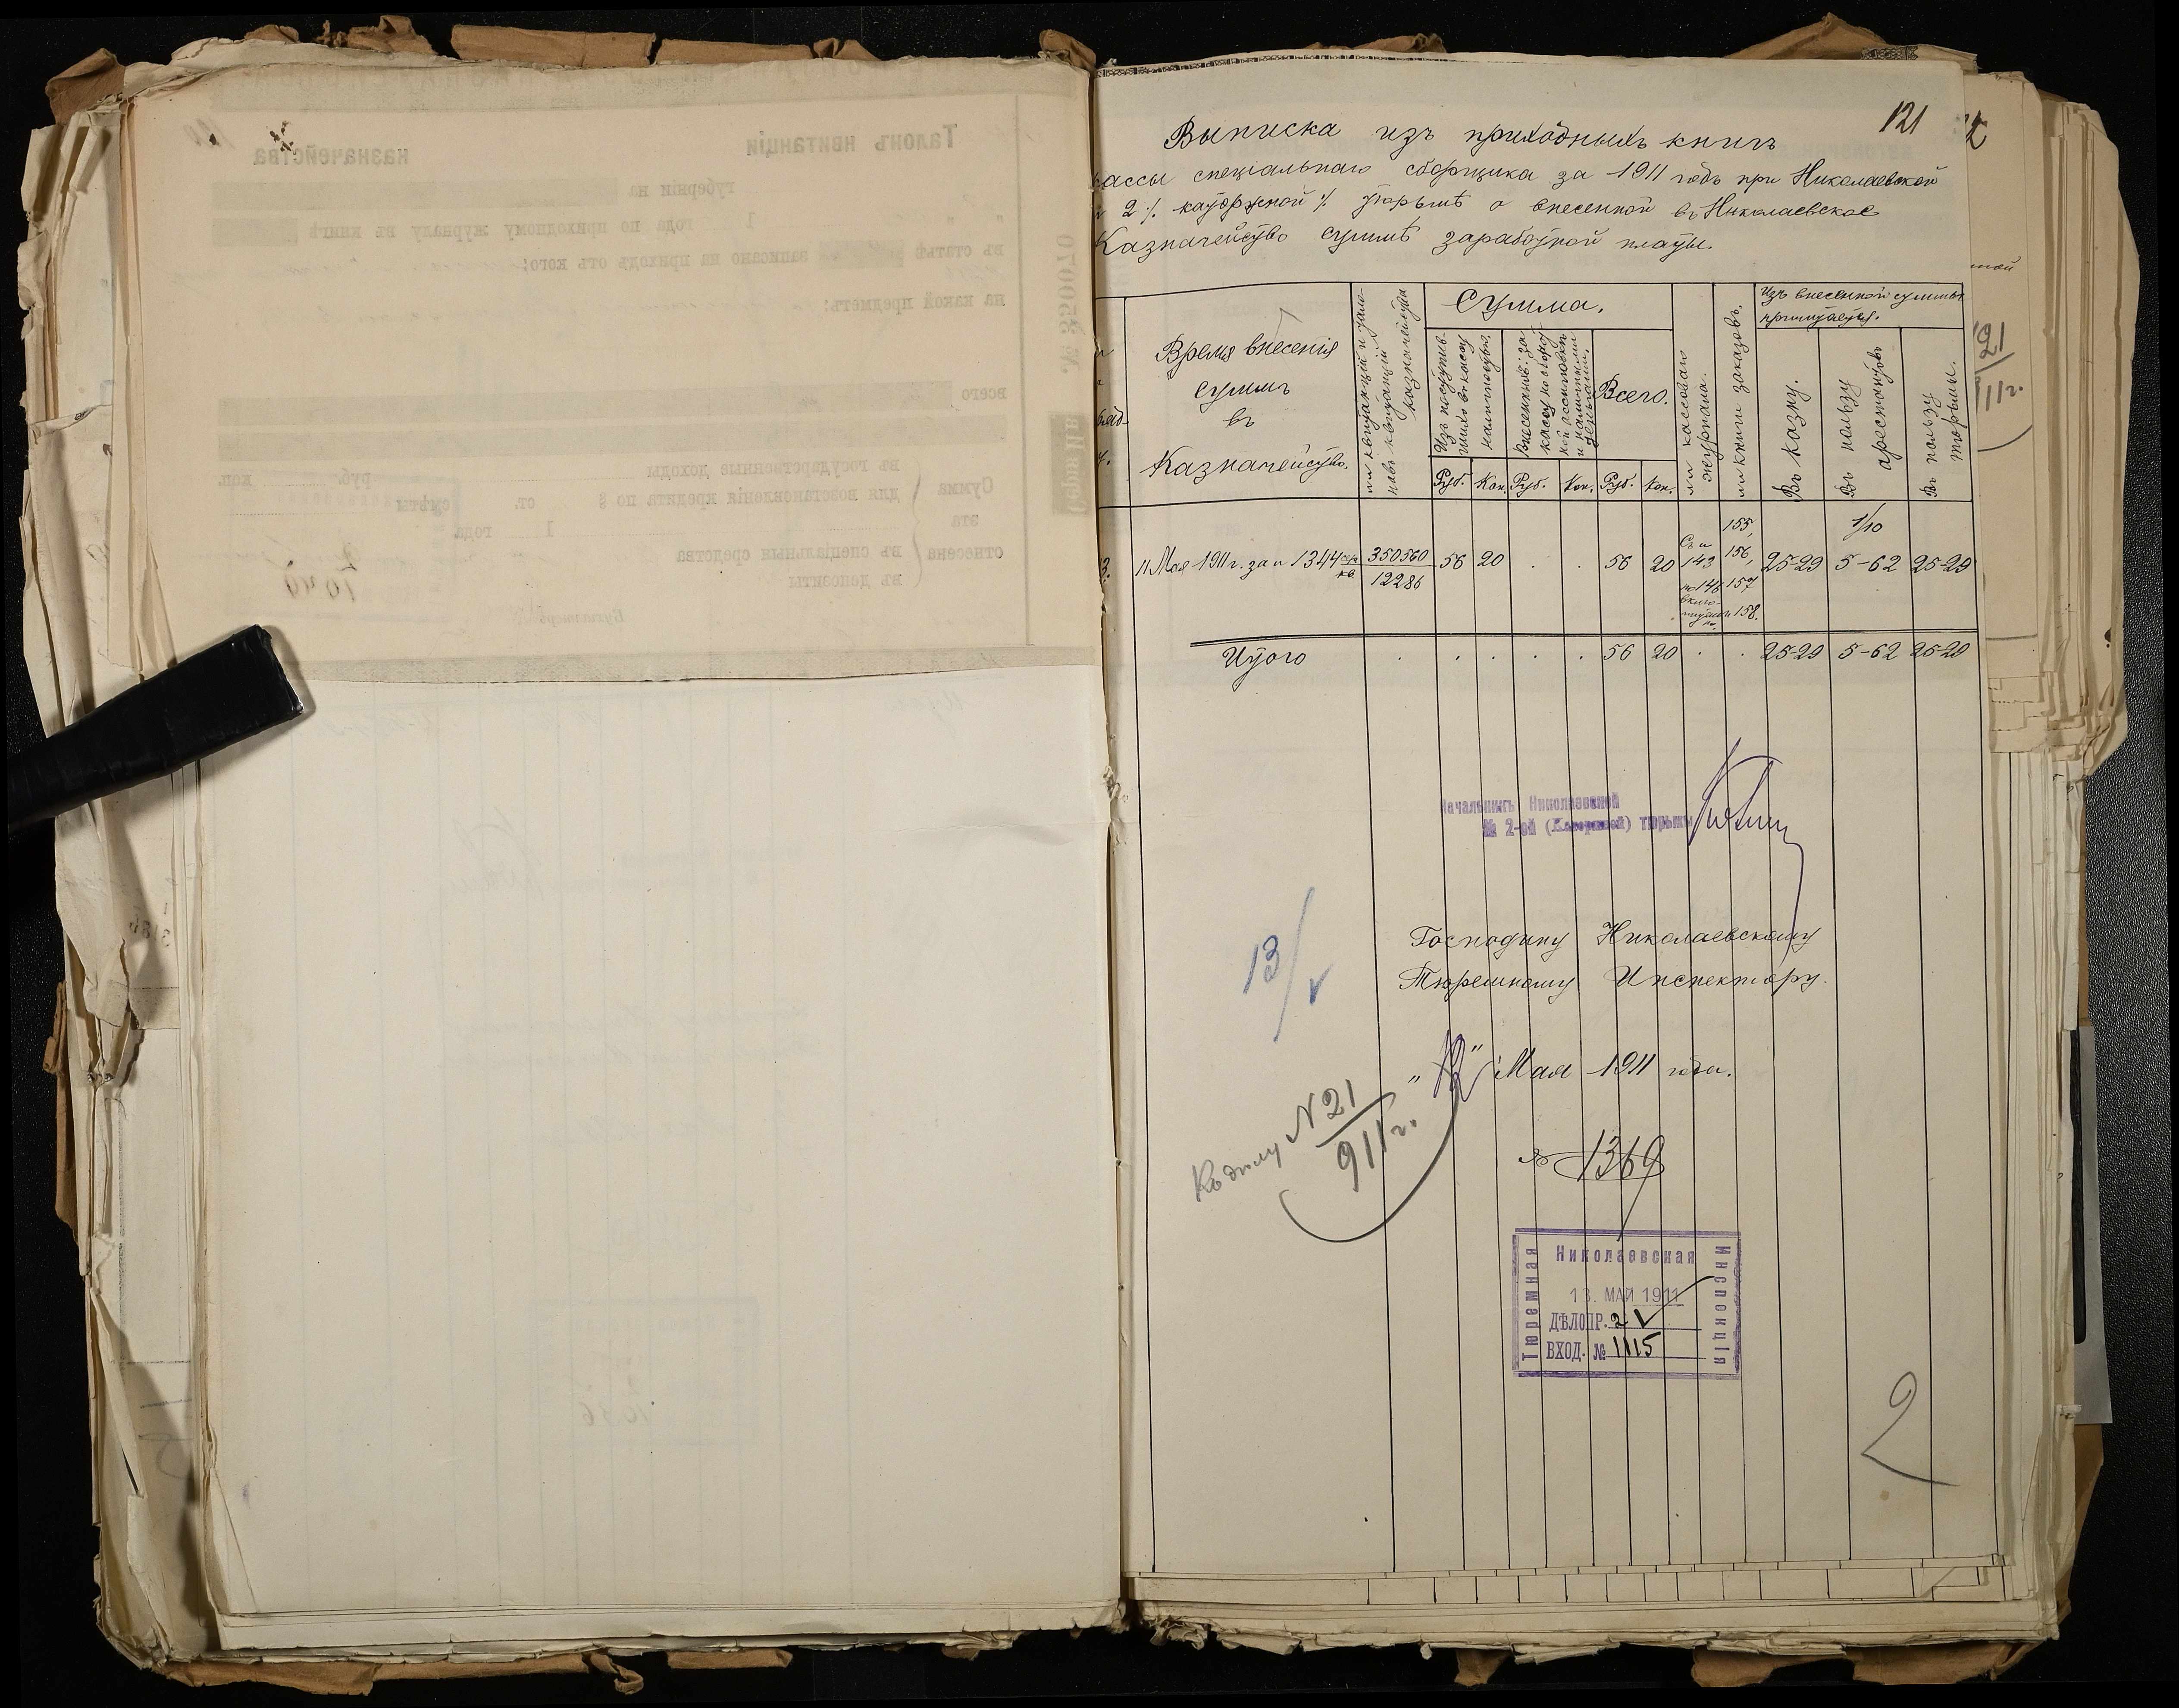 121
Выписка изъ приходныхъ книгъ
кассы спеціальнаго сборщика за 1911 годъ при Николаевской
2%. каторжной % тюрьмѣ о внесенной въ Николаевское
Казначейство суммѣ заработной платы.
Время внесенія
суммъ
въ
Казначейство.
№№ квитанцій и тало-
новъ квитанцій
казначейства
Сумма.
Изъ поступив-
шихъ въ кассу
наличностью.
Всего.
Руб. Коп. Руб. Коп. Руб. Коп.
№№ кассоваго
журнала.
№№ книги заказовъ.
Изъ внесенной суммы
причитается.
Въ казну.
Въ пользу
арестантовъ
Въ пользу
тюрьмы.
11 Мая 1911 г. за № 1344
350560
12286
56 20 . . 56 20
Съ №
143
по 146
155,
156,
157
и 158.
25-29
1/10
5-62
25-29
Итого . . . . . . 56 20 . . 25-29 5-62 25-29
Начальникъ Николаевской
№ 2-ой (Каторжной) тюрьмы
13/V
Господину Николаевскому
Тюремному Инспектору.
" 12 " Мая 1911 года.
Къ дѣлу N 21
911 г.
№ 1369
Николаевская
Тюремная
Инспекція
13. МАЙ 1911
ДѢЛОПР. 21
ВХОД. № 1115
2
Талонъ квитанціи
казначейства
губерніи на
1 года по приходному журналу въ книгѣ
въ статьѣ записано на приходъ отъ кого:
на какой предметъ:
№ 350070
всего
Серія
Сумма
эта
отнесена
въ государственные доходы руб. коп.
для возстановленія кредита по § ст. смѣты
1 года
въ спеціальныя средства
въ депозиты
Бухгалтеръ
21
11 г.